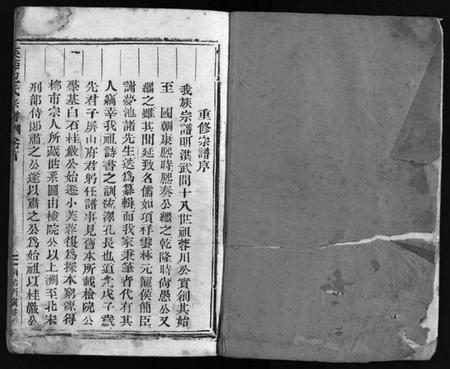 重修宗譜序
我族宗譜明洪武間十八世祖蓉川公實創其始
至　國朝康熙時熙奏公繼之乾隆時尚愚公又
繼之雖其間延致名儒如項祥雲林元侯簡臣
謝夢池諸先生迭為纂輯而我家秉筆者代有其
人竊幸我祖詩書之訓流澤孔長也道光戊子歲
先君子屏山府君躬任譜事見舊本所載檢院公
肇基白石桂嚴公始遷小芙蓉復為探本窮源得
柳市宗人所藏世系圖由檢院公以上溯至北宋
刑部侍郎肅之公遂以肅之公為始祖以桂嚴公